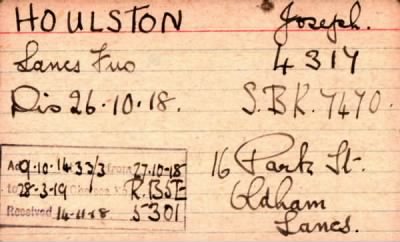 HOULSTON Joseph.
Lancs Fus 4317
Dis 26.10.18. S.B.R. 7470.
16 Park St.
Oldham
Lancs.
9-10-14 33/3 from 27-10-18
to 28-3-19 R.B5E
Received 14-11-18 5301